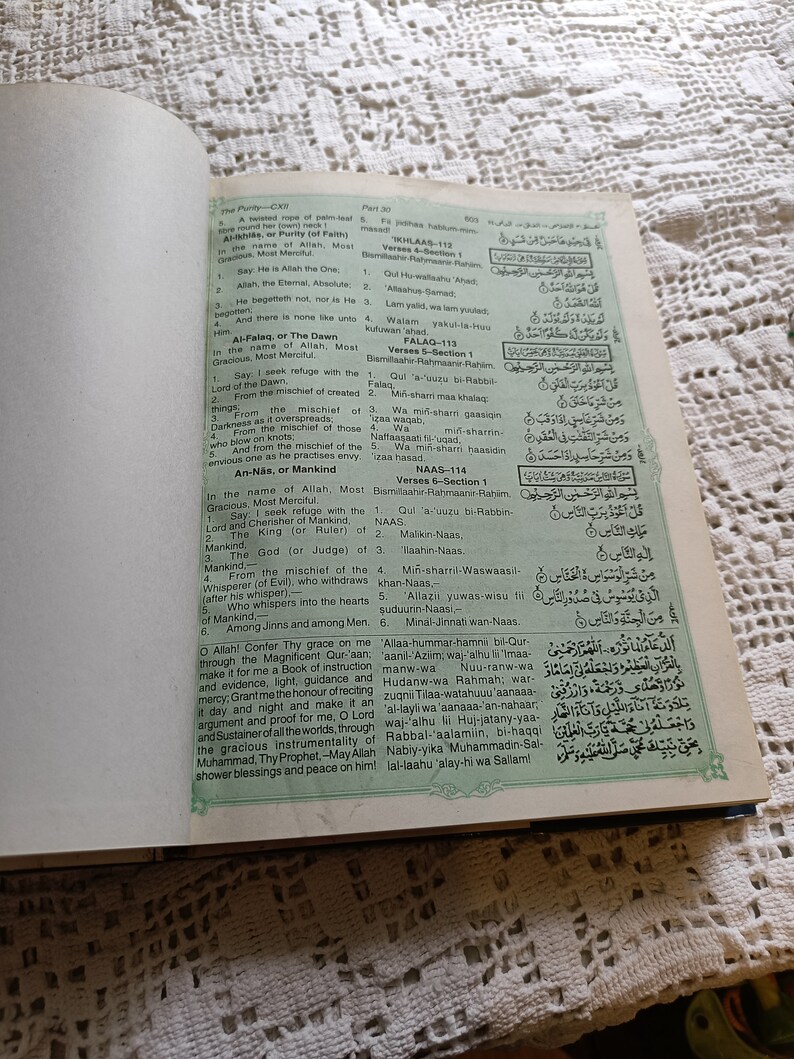 The Purity—CXII
Part 30
603
5. A twisted rope of palm-leaf
fibre round her (own) neck !
Al-Ikhlāṣ, or Purity (of Faith)
In the name of Allah, Most
Gracious, Most Merciful.
1. Say: He is Allah the One;
2. Allah, the Eternal, Absolute;
3. He begetteth not, nor is He
begotten;
4. And there is none like unto
Him.
Al-Falaq, or The Dawn
In the name of Allah, Most
Gracious, Most Merciful.
1. Say: I seek refuge with the
Lord of the Dawn,
2. From the mischief of created
things;
3. From the mischief of
Darkness as it overspreads;
4. From the mischief of those
who blow on knots;
5. And from the mischief of the
envious one as he practises envy.
An-Nās, or Mankind
In the name of Allah, Most
Gracious, Most Merciful.
1. Say: I seek refuge with the
Lord and Cherisher of Mankind,
2. The King (or Ruler) of
Mankind,
3. The God (or Judge) of
Mankind,—
4. From the mischief of the
Whisperer (of Evil), who withdraws
(after his whisper),—
5. Who whispers into the hearts
of Mankind,—
6. Among Jinns and among Men.
5. Fii jiidihaa hablum-mim-
masad!
'IKHLAAS–112
Verses 4–Section 1
Bismillaahir-Raḥmaanir-Raḥiim.
1. Qul Hu-wallaahu 'Aḥad;
2. 'Allaahuṣ-Ṣamad;
3. Lam yalid, wa lam yuulad;
4. Walam yakul-la-Huu
kufuwan 'aḥad.
FALAQ–113
Verses 5–Section 1
Bismillaahir-Raḥmaanir-Raḥiim.
1. Qul 'a-'uuẓu bi-Rabbil-
Falaq,
2. Miñ-sharri maa khalaq:
3. Wa miñ-sharri gaasiqin
'iẓaa waqab,
4. Wa miñ-sharrin-
Naffaaṣaati fil-'uqad,
5. Wa miñ-sharri ḥaasidin
'iẓaa hasad.
NAAS–114
Verses 6–Section 1
Bismillaahir-Raḥmaanir-Raḥiim.
1. Qul 'a-'uuẓu bi-Rabbin-
NAAS.
2. Malikin-Naas,
3. 'Ilaahin-Naas.
4. Miñ-sharril-Waswaasil-
khan-Naas,–
5. 'Allaẓii yuwas-wisu fii
ṣuduurin-Naasi,–
6. Minal-Jinnati wan-Naas.
فِىْ جِيْدِهَا حَبْلٌ مِّنْ مَّسَدٍ
بِسْمِ اللهِ الرَّحْمٰنِ الرَّحِيْمِ
قُلْ هُوَ اللهُ اَحَدٌ ۱
اَللهُ الصَّمَدُ ۲
لَمْ يَلِدْ وَلَمْ يُوْلَدْ ۳
وَلَمْ يَكُنْ لَّهٗ كُفُوًا اَحَدٌ ۴
بِسْمِ اللهِ الرَّحْمٰنِ الرَّحِيْمِ
قُلْ اَعُوْذُ بِرَبِّ الْفَلَقِ ۱
مِنْ شَرِّ مَا خَلَقَ ۲
وَمِنْ شَرِّ غَاسِقٍ اِذَا وَقَبَ ۳
وَمِنْ شَرِّ النَّفّٰثٰتِ فِى الْعُقَدِ ۴
وَمِنْ شَرِّ حَاسِدٍ اِذَا حَسَدَ ۵
بِسْمِ اللهِ الرَّحْمٰنِ الرَّحِيْمِ
قُلْ اَعُوْذُ بِرَبِّ النَّاسِ ۱
مَلِكِ النَّاسِ ۲
اِلٰهِ النَّاسِ ۳
مِنْ شَرِّ الْوَسْوَاسِ الْخَنَّاسِ ۴
الَّذِىْ يُوَسْوِسُ فِىْ صُدُوْرِ النَّاسِ ۵
مِنَ الْجِنَّةِ وَالنَّاسِ ۶
O Allah! Confer Thy grace on me
through the Magnificent Qur-'aan;
make it for me a Book of instruction
and evidence, light, guidance and
mercy; Grant me the honour of reciting
it day and night and make it an
argument and proof for me, O Lord
and Sustainer of all the worlds, through
the gracious instrumentality of
Muhammad, Thy Prophet, –May Allah
shower blessings and peace on him!
'Allaa-hummar-hamnii bil-Qur-
'aanil-'Aziim; waj-'alhu lii 'Imaa-
manw-wa Nuu-ranw-wa
Hudanw-wa Rahmah; war-
zuqnii Tilaa-watahuuu 'aanaaa-
'al-layli wa 'aanaaa-'an-nahaar;
waj-'alhu lii Huj-jatany-yaa-
Rabbal-'aalamiin, bi-haqqi
Nabiy-yika Muhammadin-Sal-
lal-laahu 'alay-hi wa Sallam!
اَللّٰهُمَّ ارْحَمْنِىْ
بِالْقُرْاٰنِ الْعَظِيْمِ وَاجْعَلْهُ لِىْ اِمَامًا وَّ
نُوْرًا وَّهُدًى وَّرَحْمَةً وَارْزُقْنِىْ
تِلَاوَتَهٗ اٰنَآءَ الَّيْلِ وَاٰنَآءَ النَّهَارِ
وَاجْعَلْهُ لِىْ حُجَّةً يَّارَبَّ الْعٰلَمِيْنَ
بِحَقِّ نَبِيِّكَ مُحَمَّدٍ صَلَّى اللهُ عَلَيْهِ وَسَلَّمَ